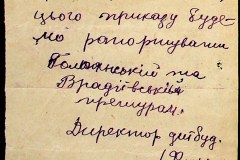 цього приказу буде-
мо рапортувати
Голтянській та
Врадіївській
претурам.
Директор дитбуд.